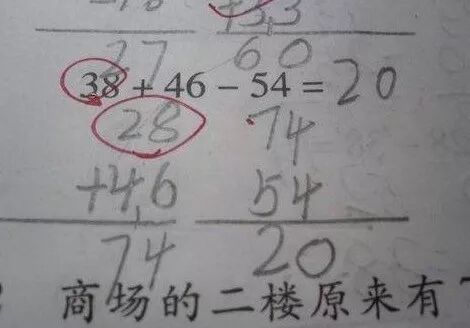 +3,3
27 60
38 + 46 - 54 = 20
28 74
+46 54
74 20
商场的二楼原来有